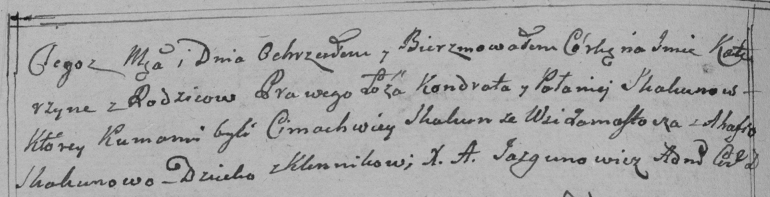 Tegoz Mca i Dnia Ochrzciłem y Bierzmowałem Córkę na Imie Kate
rzyne z Rodzicow Prawego Łoża Kondrata y Połaniej Skakunow
Którey Kumami byli Cimachwiey Skakun ze Wsi z Ahafio
Skakunowo Dziecko z Klennikow; X. A. Jazgunowicz Adm